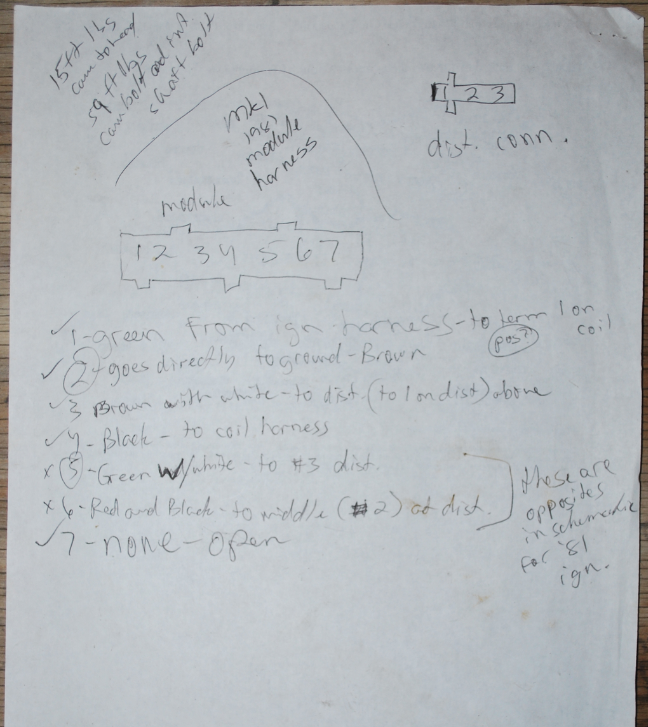 15 ft lbs
cam to head
59 ft lbs
cam bolt and int
shaft bolt
MK1
1981
module
harness
2 3
dist. conn.
module
1 2 3 4 5 6 7
1-green from ign harness-to term 1 on coil
pos?
2-goes directly to ground-Brown
3 Brown with white-to dist. (to 1 on dist) above
4-Black-to coil harness
x 5-Green w/white-to #3 dist.
x 6-Red and Black-to middle (#2) at dist.
7-none-open
these are
opposites
in schematic
for '81
ign.